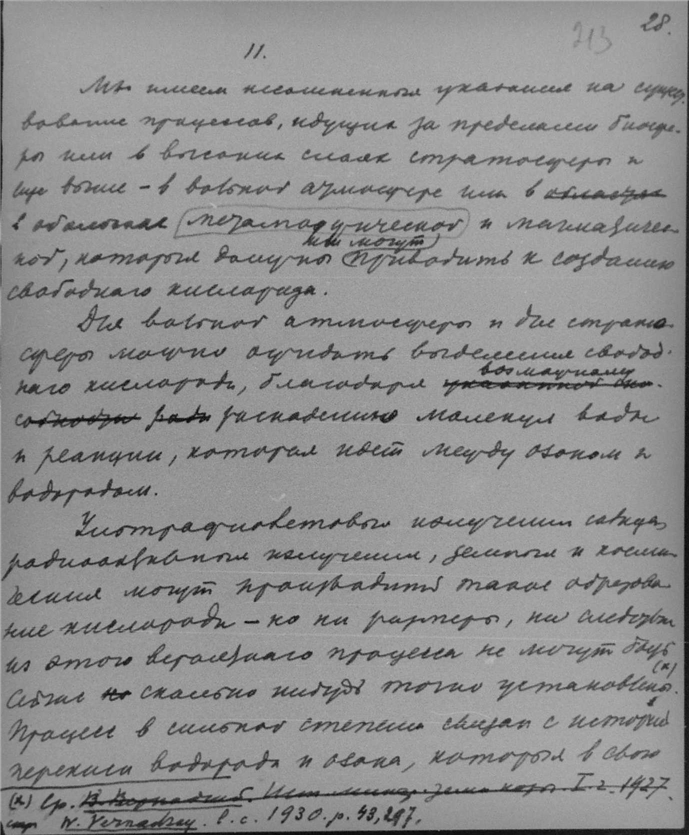 28.
213
11.
Мы имеем несомненныя указания на сущест-
вование процессов, идущих за пределами биосфе-
ры или в высоких слоях стратосферы и
еще выше – в вольной атмосфере или в области
в оболочках метаморфической и магматичес-
или могут
кой, которыя должны приводить к созданию
свободного кислорода.
Для вольной атмосферы и для страто-
сферы можно ожидать выделения свобод-
возможному
ного кислорода, благодаря указанной
ради распадению молекул воды
и реакции, которая идет между озоном и
водородом.
Ультрафиолетовыя излучения солнца,
радиоактивныя излучения, земныя и косми-
ческия могут производить такое образова-
ние кислорода – но ни размеры, ни следствия
из этого вероятного процесса не могут быть
(x)
сейчас но сколько нибудь точно установлены.
Процесс в сильной степени связан с историей
перекиси водорода и озона, которыя в свою
(x) Ср. В. Вернадский. Ист. минер. земн. коры. I. г. 1927.
стр. W. Vernadsky. l. c. 1930. p. 43, 297.